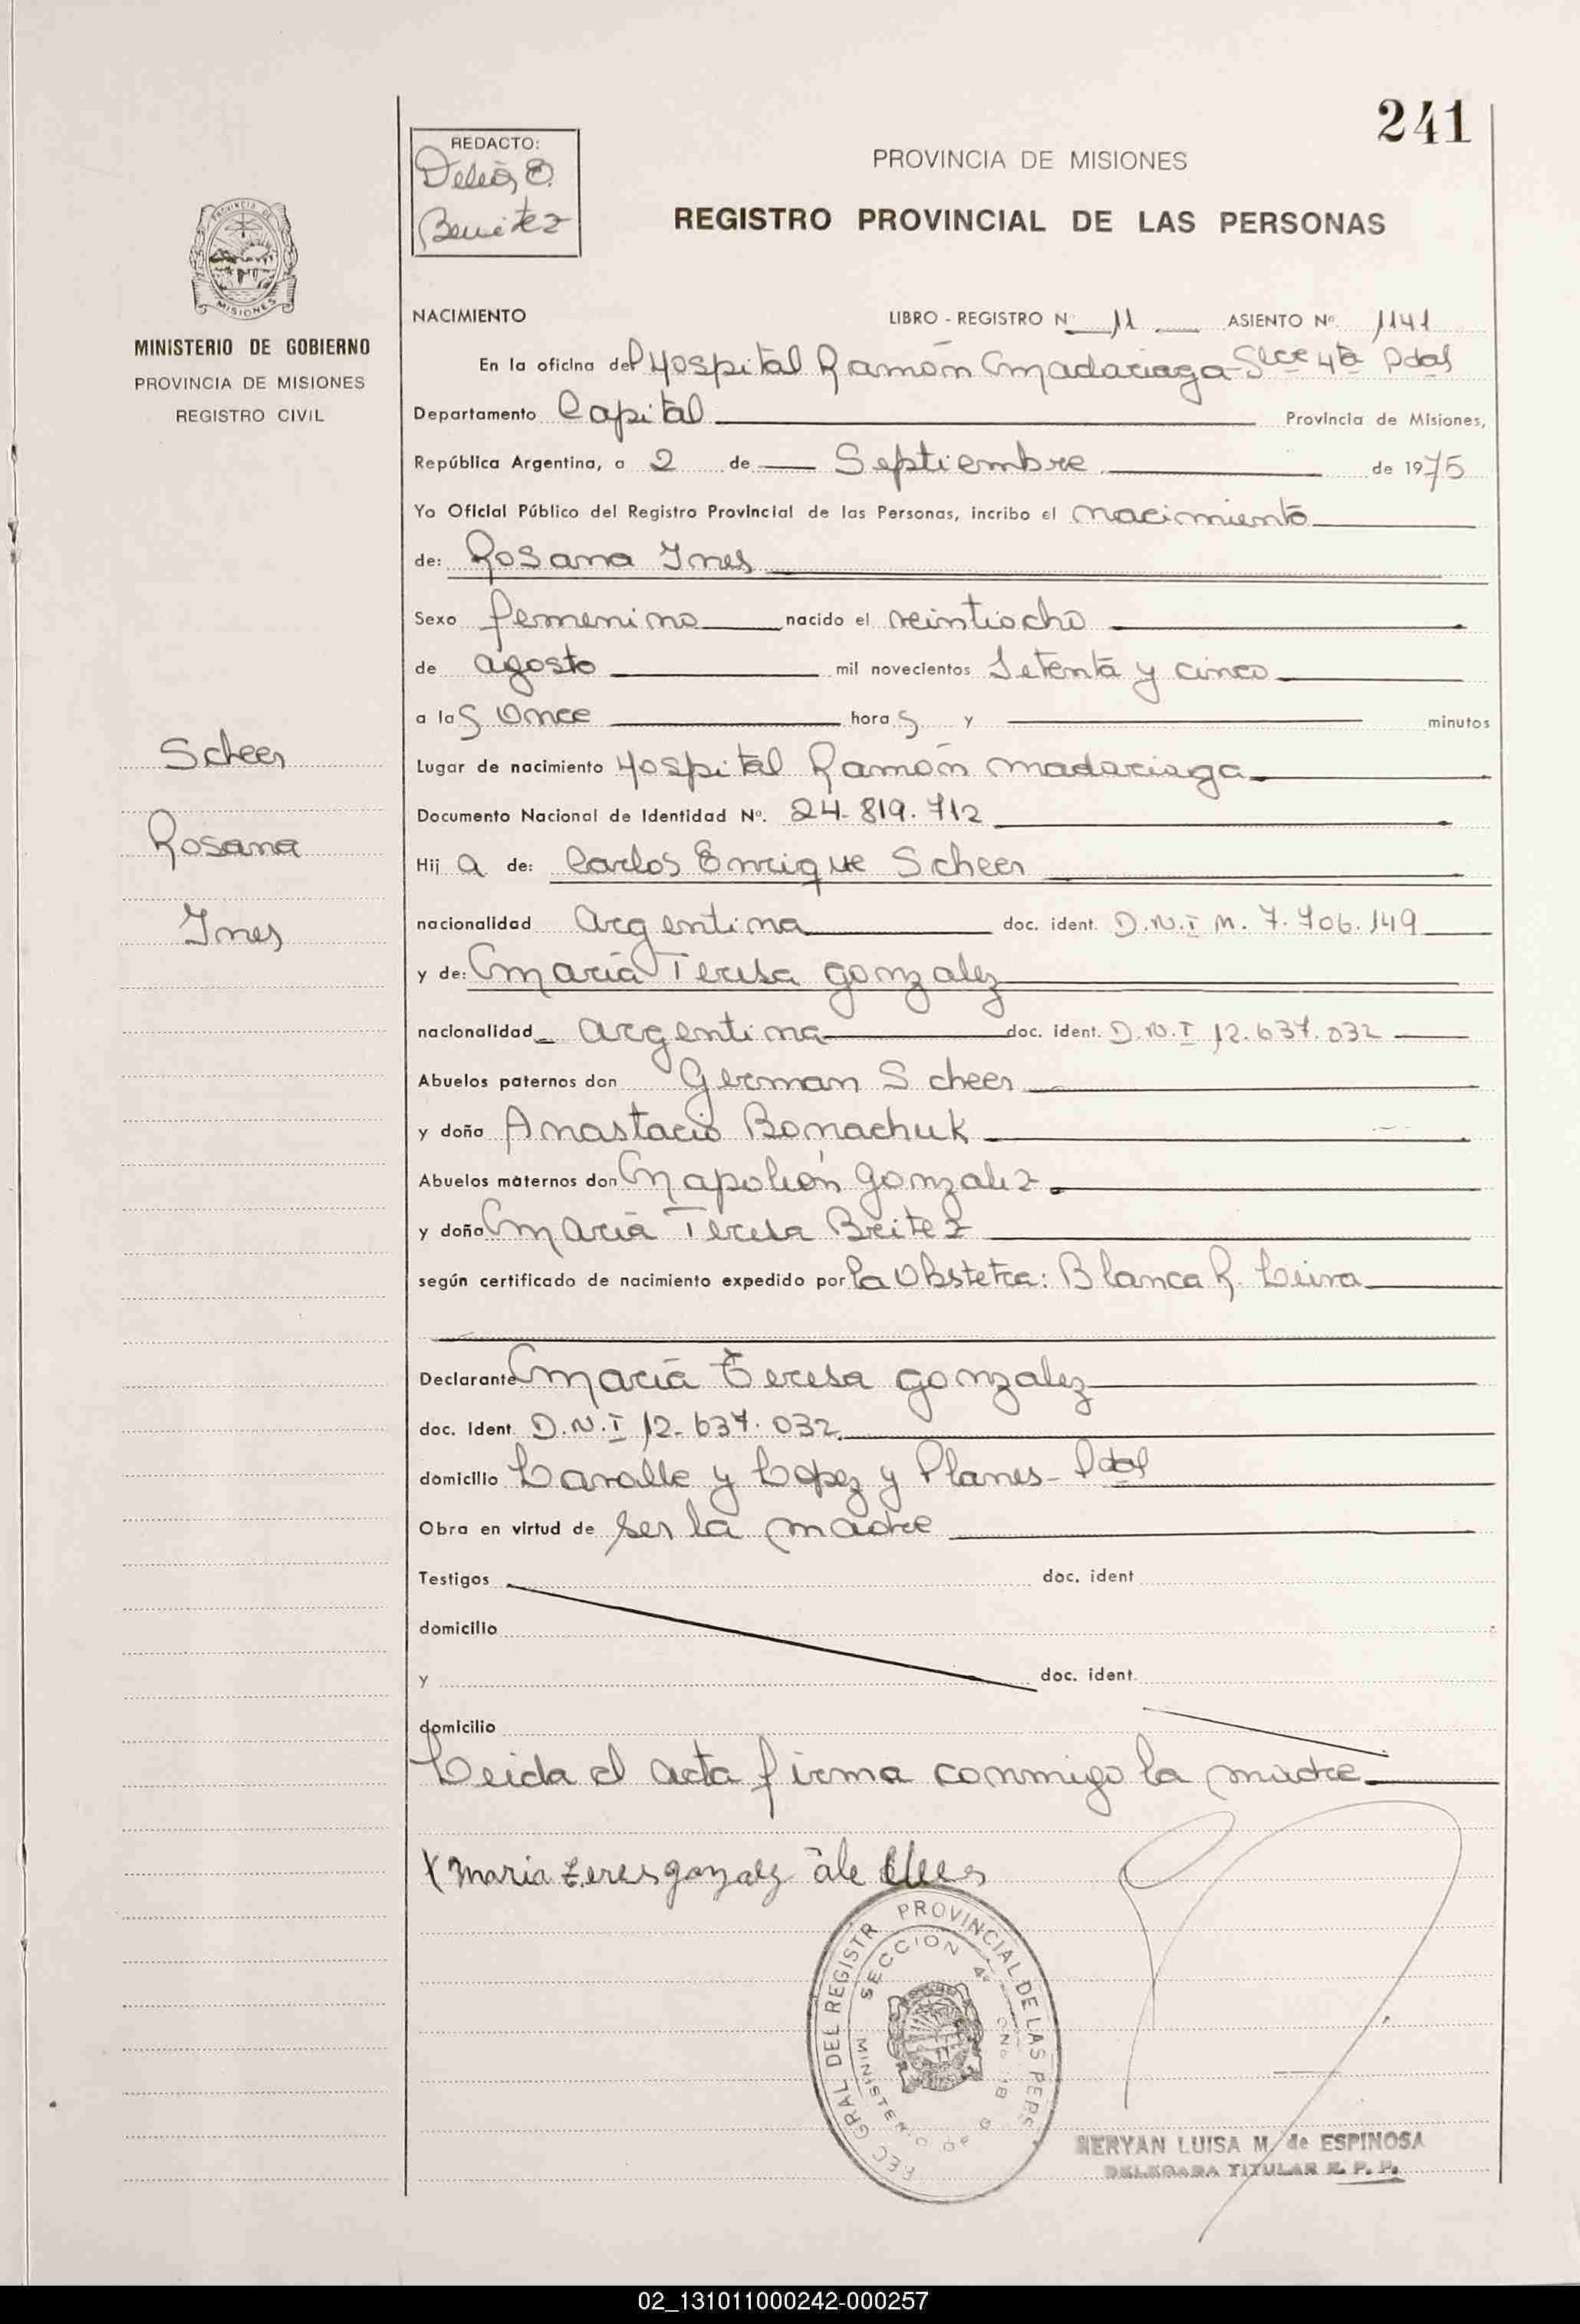 241
REDACTO:
Benitez
PROVINCIA DE MISIONES
REGISTRO PROVINCIAL DE LAS PERSONAS
PROVINCIA DE
MISIONES
MINISTERIO DE GOBIERNO
PROVINCIA DE MISIONES
REGISTRO CIVIL
NACIMIENTO LIBRO - REGISTRO Nº 11 ASIENTO Nº 1141
En la oficina del Hospital Ramón Madariaga - Secc 4ta Pdas
Departamento Capital Provincia de Misiones,
República Argentina, a 2 de Septiembre de 1975
Yo Oficial Público del Registro Provincial de las Personas, incribo el nacimiento
de: Rosana Ines
Sexo femenino nacido el veintiocho
de agosto mil novecientos Setenta y cinco
a las once horas y minutos
Scheer
Lugar de nacimiento Hospital Ramón Madariaga
Documento Nacional de Identidad Nº. 24.819.712
Rosana
Hija de: Carlos Enrique Scheer
Ines
nacionalidad argentina doc. ident. D.N.I M. 7.706.149
y de: Maria Teresa gonzalez
nacionalidad argentina doc. ident. D.N.I 12.637.032
Abuelos paternos don German Scheer
y doña Anastacio Bomachuk
Abuelos maternos don Napoleón gonzalez
y doña Maria Teresa Breitez
según certificado de nacimiento expedido por la Obstetra: Blanca R. Leiva
Declarante Maria Teresa gonzalez
doc. Ident. D.N.I 12.637.032
domicilio Lavalle y Lopez y Planes - Pdas
Obra en virtud de ser la madre
Testigos doc. ident
domicilio
y doc. ident.
domicilio
Leida el acta firma conmigo la madre
X maria teres gonzalez
REGISTR PROVINCIAL DE LAS PERS
SECCION 4ª
NERYAN LUISA M. de ESPINOSA
DELEGADA TITULAR R. P. P.
02_131011000242-000257